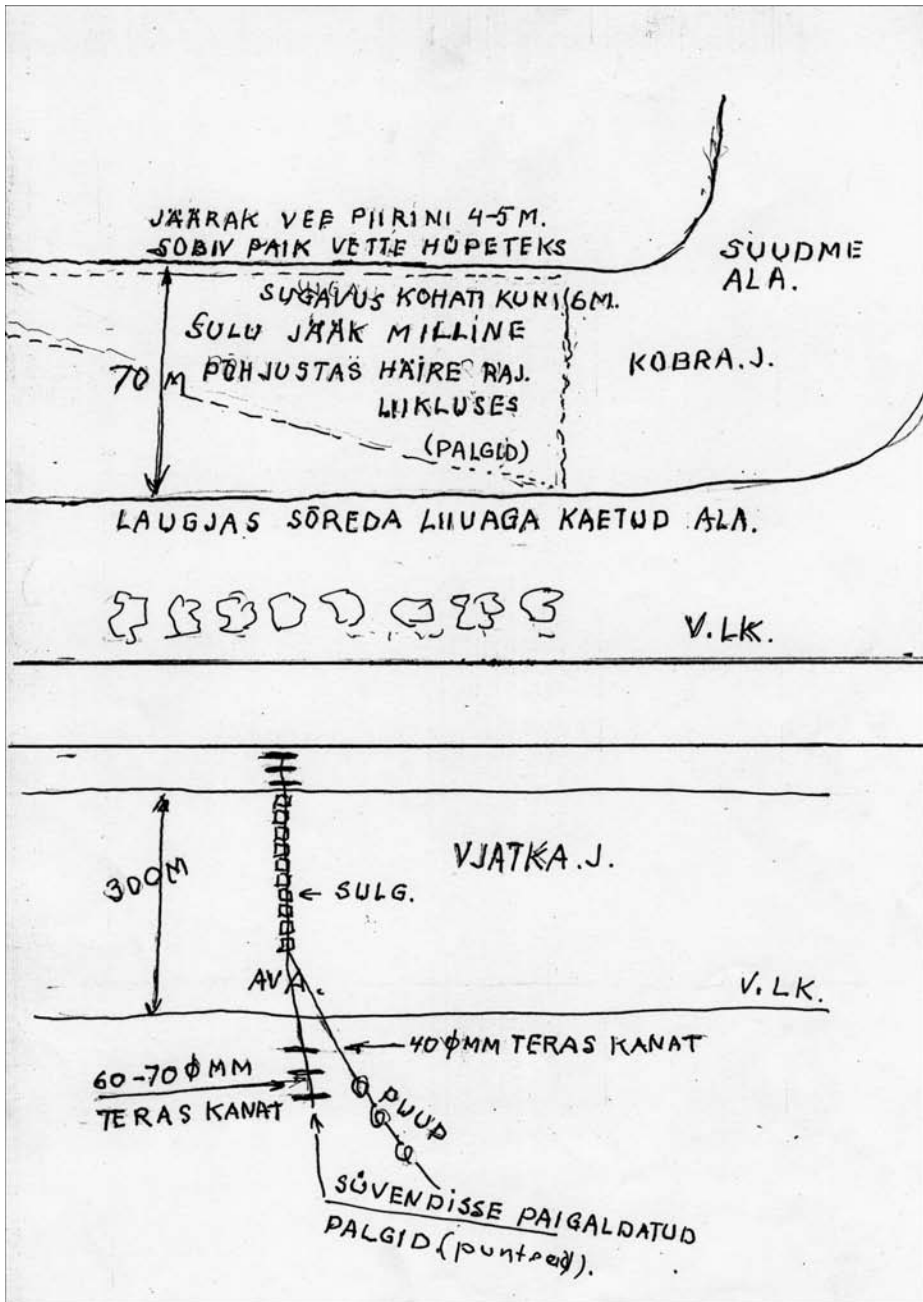 JÄÄRAK VEE PIIRINI 4-5 M.
SOBIV PAIK VETTE HÜPETEKS
SUUDME
ALA.
SUGAVUS KOHATI KUNI 6M.
SULU JÄÄK MILLINE
PÕHJUSTAS HÄIRE RAJ.
LIIKLUSES
(PALGID)
70 M
KOBRA. J.
LAUGJAS SÕREDA LIIVAGA KAETUD ALA.
V. LK.
300M
VJATKA. J.
SULG.
AVA.
V. LK.
40 ϕ MM TERAS KANAT
60-70 ϕ MM
TERAS KANAT
PUUD
SÜVENDISSE PAIGALDATUD
PALGID (puntrad).